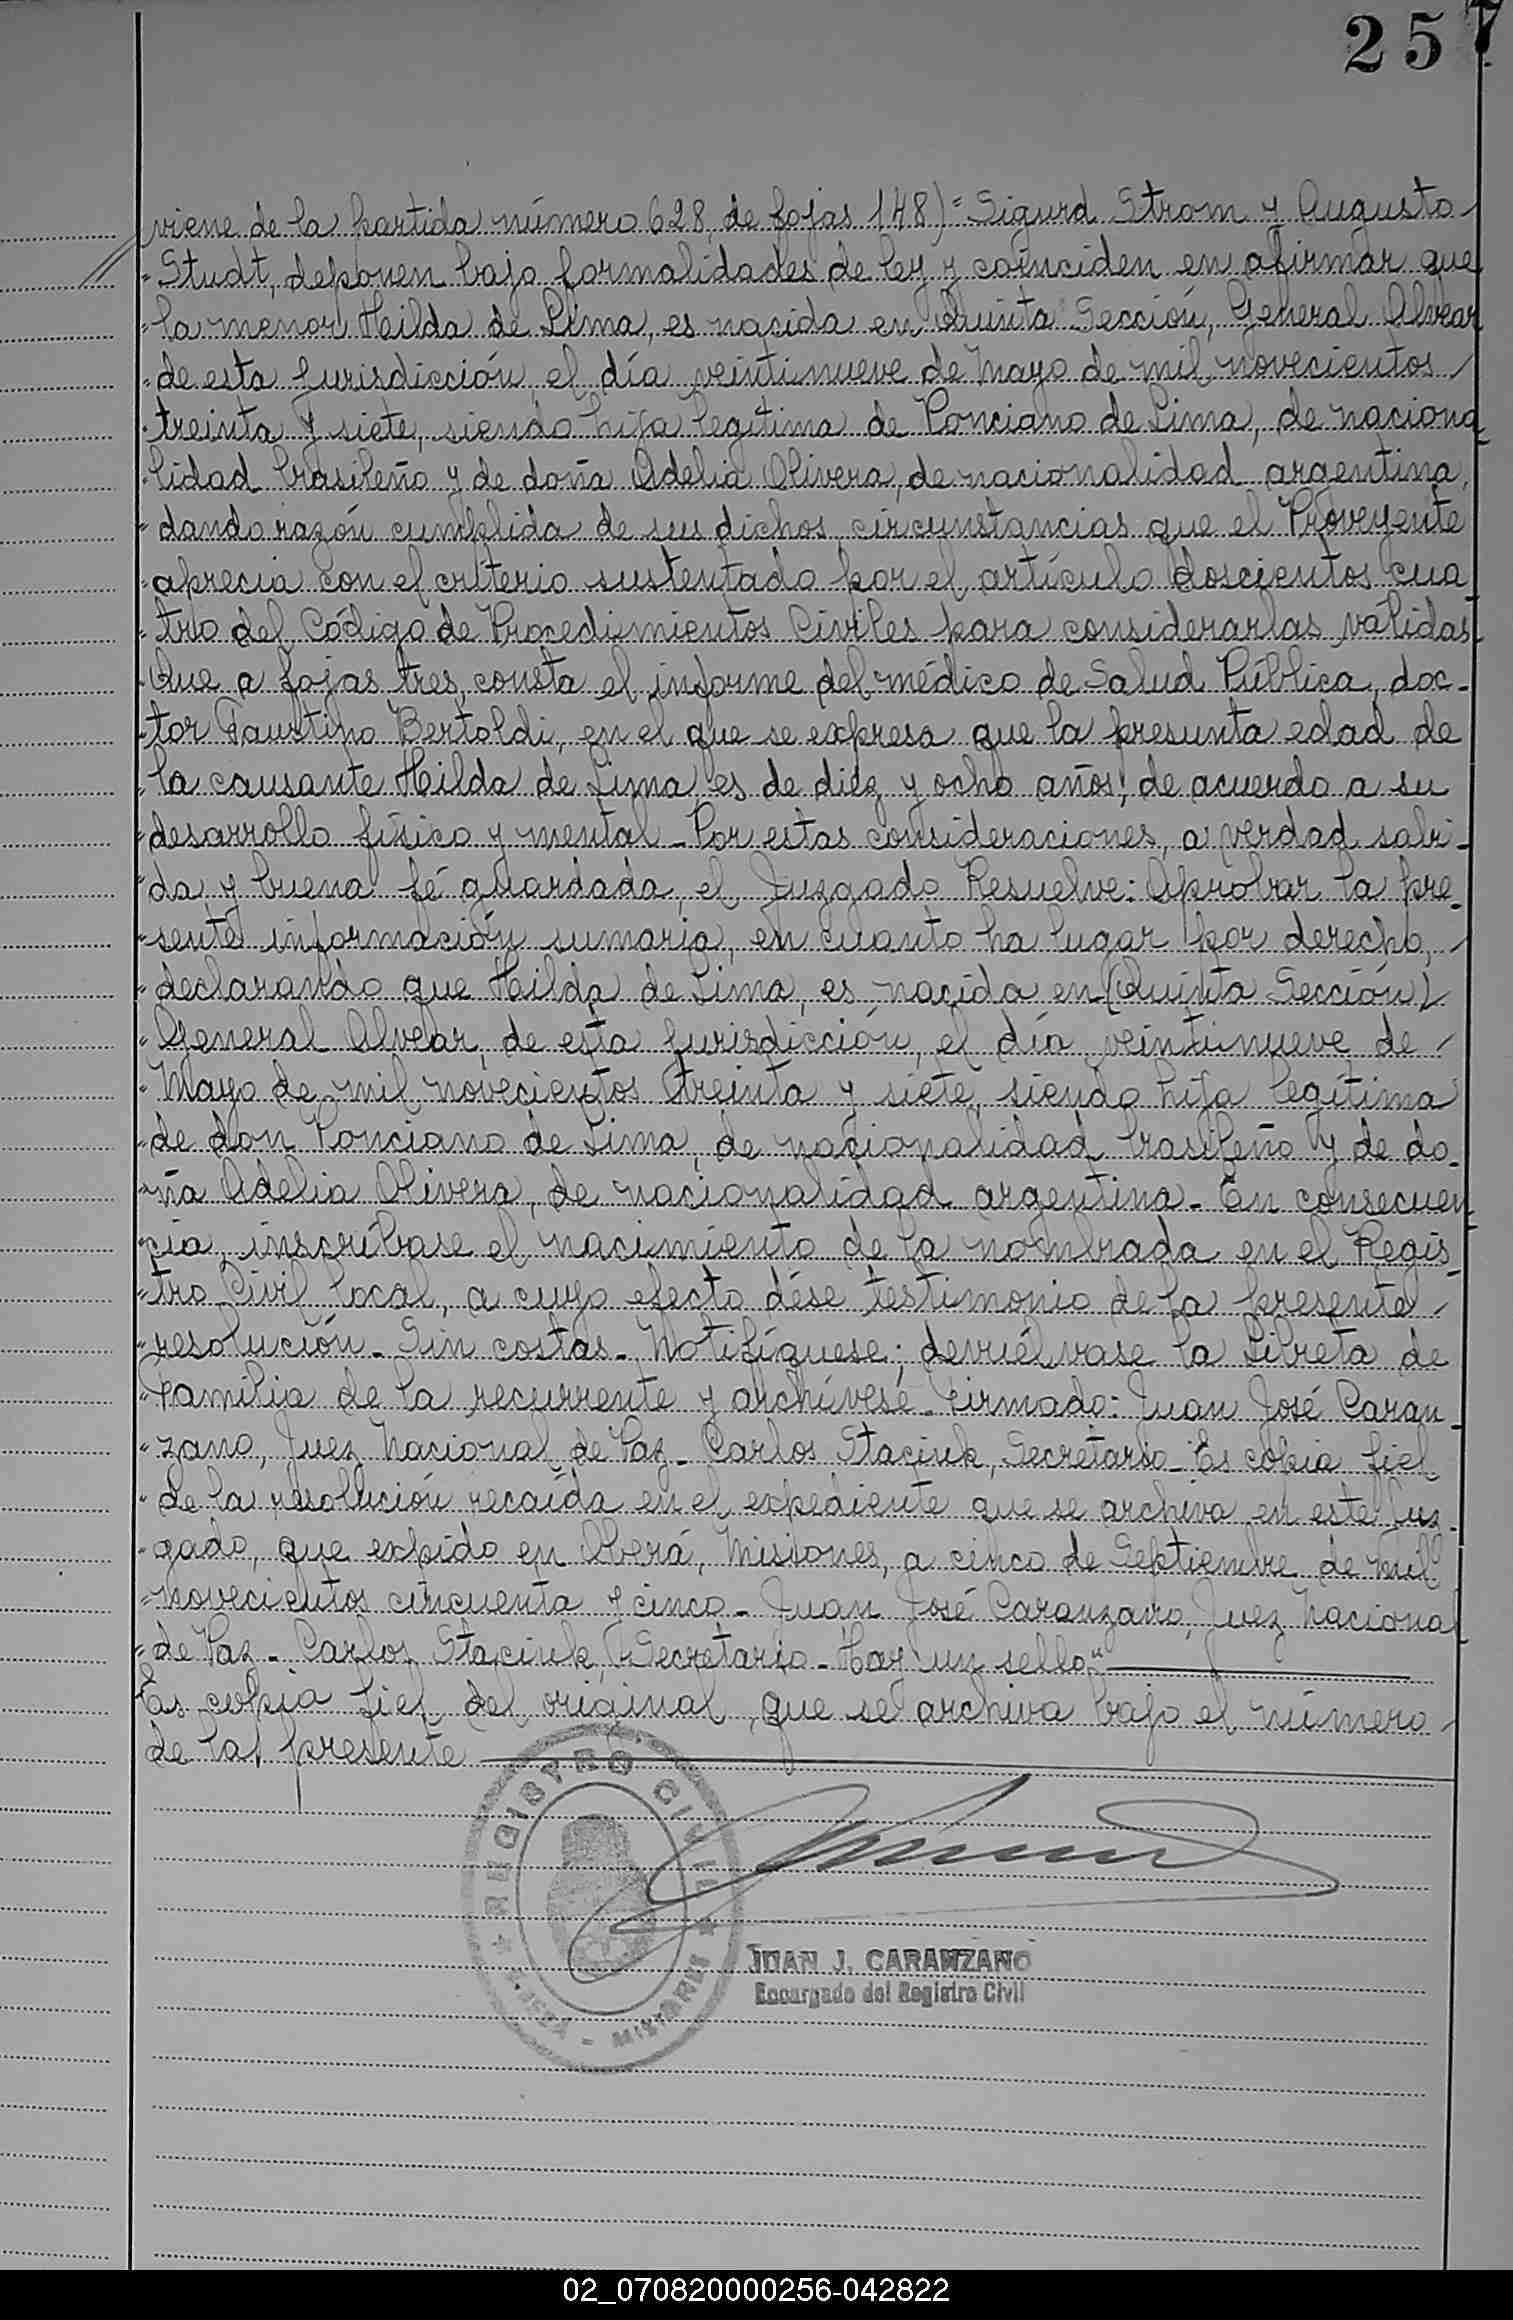 257
viene de la partida número 628, de fojas 148)= Sigurd Strom y Augusto
"Studt, deponen bajo formalidades de ley y coinciden en afirmar que
"la menor Hilda de Lima, es nacida en Quinta Sección, General Alvear
"de esta jurisdicción, el día veintinueve de Mayo de mil novecientos
"treinta y siete, siendo hija legítima de Ponciano de Lima, de naciona
"lidad brasileño y de doña Adelia Olivera, de nacionalidad argentina,
"dando razón cumplida de sus dichos, circunstancias que el Proveyente
"aprecia con el criterio sustentado por el artículo doscientos cua
"tro del Código de Procedimientos Civiles para considerarlas válidas
"Que a fojas tres, consta el informe del médico de Salud Pública, doc-
"tor Faustino Bertoldi, en el que se expresa que la presunta edad de
"la causante Hilda de Lima, es de diez y ocho años, de acuerdo a su
"desarrollo físico y mental - Por estas consideraciones, a verdad sabi-
"da y buena fé guardada, el Juzgado Resuelve: Aprobar la pre-
"sente información sumaria, en cuanto ha lugar por derecho,
"declarando que Hilda de Lima, es nacida en (Quinta Sección)
"General Alvear, de esta jurisdicción, el día veintinueve de
"Mayo de mil novecientos treinta y siete, siendo hija legítima
"de don Ponciano de Lima, de nacionalidad brasileño y de do-
"ña Adelia Olivera, de nacionalidad argentina - En consecuen
"cia, inscríbase el nacimiento de la nombrada en el Regis
"tro Civil local, a cuyo efecto dése testimonio de la presente
"resolución - Sin costas - Notifíquese; devuélvase la Libreta de
"Familia de la recurrente y archívese - Firmado: Juan José Caran-
"zano, Juez Nacional de Paz - Carlos Staciuk, Secretario - Es copia fiel
"de la resolución recaída en el expediente que se archiva en este Juz-
"gado, que expido en Oberá, Misiones, a cinco de Septiembre de mil
"novecientos cincuenta y cinco - Juan José Caranzano, Juez Nacional
"de Paz - Carlos Staciuk, Secretario - Hay un sello"
Es copia fiel del original, que se archiva bajo el número
de la presente
REGISTRO CIVIL
MISIONES
JUAN J. CARANZANO
Encargado del Registro Civil
02_070820000256-042822